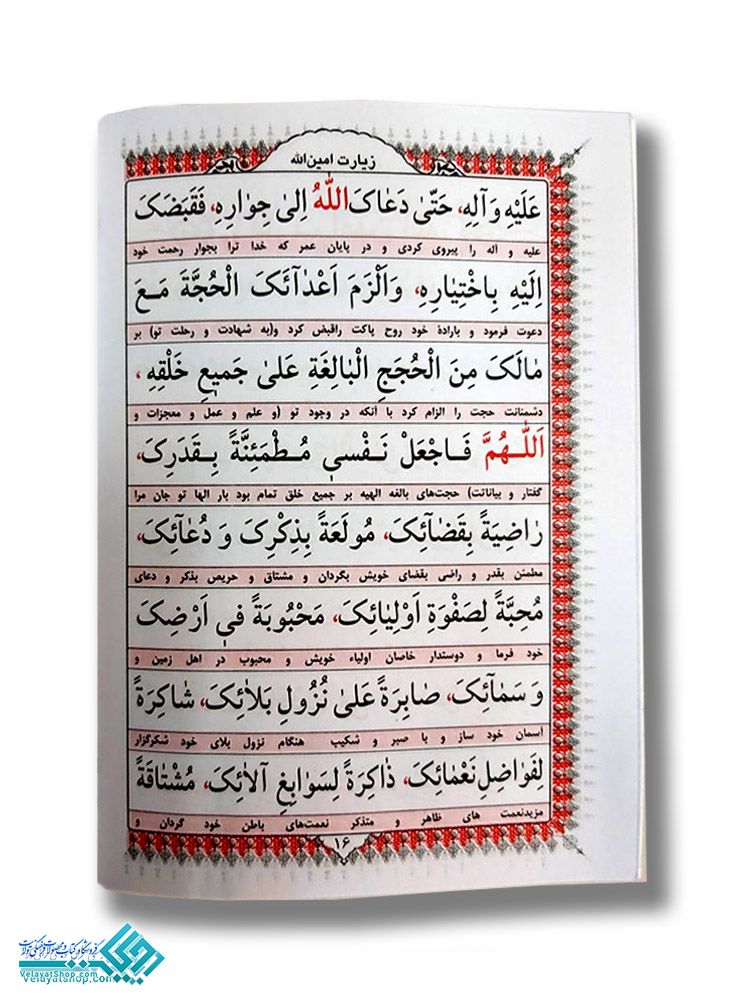 زیارت امین‌الله
عَلَیْهِ وَ آلِهِ، حَتّیٰ دَعٰاکَ اللّٰهُ اِلیٰ جِوٰارِهِ، فَقَبَضَکَ
علیه و آله را پیروی کردی و در پایان عمر که خدا ترا بجوار رحمت خود
اِلَیْهِ بِاخْتِیٰارِهِ، وَاَلْزَمَ اَعْدٰآئَکَ الْحُجَّةَ مَـعَ
دعوت فرمود و بارادهٔ خود روح پاکت راقبض کرد و(به شهادت و رحلت تو) بر
مٰالَکَ مِنَ الْحُجَجِ الْبٰالِغَةِ عَلیٰ جَمیٖعِ خَلْقِهِ ،
دشمنانت حجت را الزام کرد با آنکه در وجود تو (و علم و عمل و معجزات و
اَللّٰـهُمَّ فَـاجْعَلْ نَـفْسیٖ مُـطْمَئِنَّةً بِـقَدَرِکَ،
گفتار و بیاناتت) حجت‌های بالغه الهیه بر جمیع خلق تمام بود بار الها تو جان مرا
رٰاضِیَةً بِقَضٰآئِکَ، مُولَعَةً بِذِکْرِکَ وَ دُعٰآئِکَ،
مطمئن بقدر و راضی بقضای خویش بگردان و مشتاق و حریص بذکر و دعای
مُحِبَّةً لِصَفْوَةِ اَوْلِیٰائِکَ، مَحْبُوبَةً فیٖ اَرْضِکَ
خود فرما و دوستدار خاصان اولیاء خویش و محبوب در اهل زمین و
وَ سَمٰآئِکَ، صٰابِرَةً عَلیٰ نُزُولِ بَلاٰئِکَ، شٰاکِرَةً
آسمان خود ساز و با صبر و شکیب هنگام نزول بلای خود شکرگزار
لِفَوٰاضِلِ نَعْمٰائِکَ، ذٰاکِرَةً لِسَوٰابِغِ آلاٰئِکَ، مُشْتٰاقَةً
مزیدنعمت های ظاهر و متذکر نعمت‌های باطن خود گردان و
۱۶
فروشگاه کتاب و محصولات فرهنگی ولایت
VelayatShop.com
Velayatshop.com